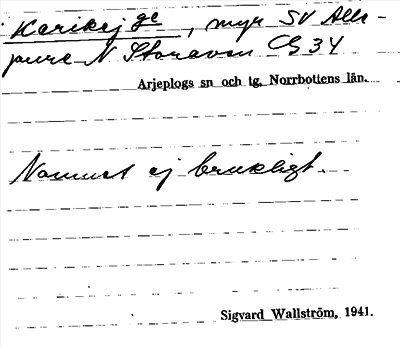 Karikejge, myr SV Alle-
pure N Storavan Cg 34
Arjeplogs sn och tg, Norrbottens län.
Namnet ej brukligt.
Sigvard Wallström, 1941.